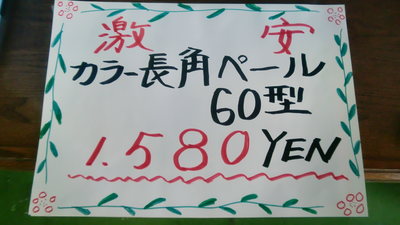 激安
カラー長角ペール
60型
1.580YEN